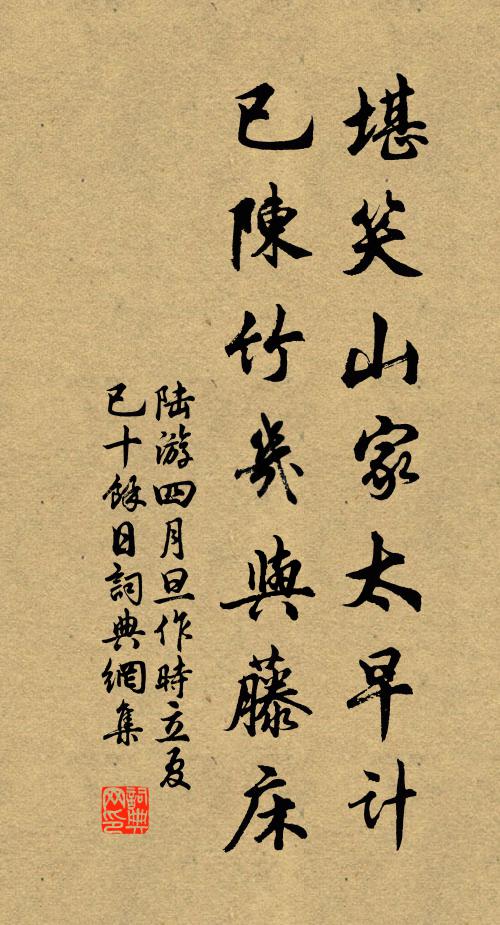 堪笑山家太早计
已陳竹几與藤床
陆游四月旦作時立夏
已十餘日詞典網集
詞典
网印